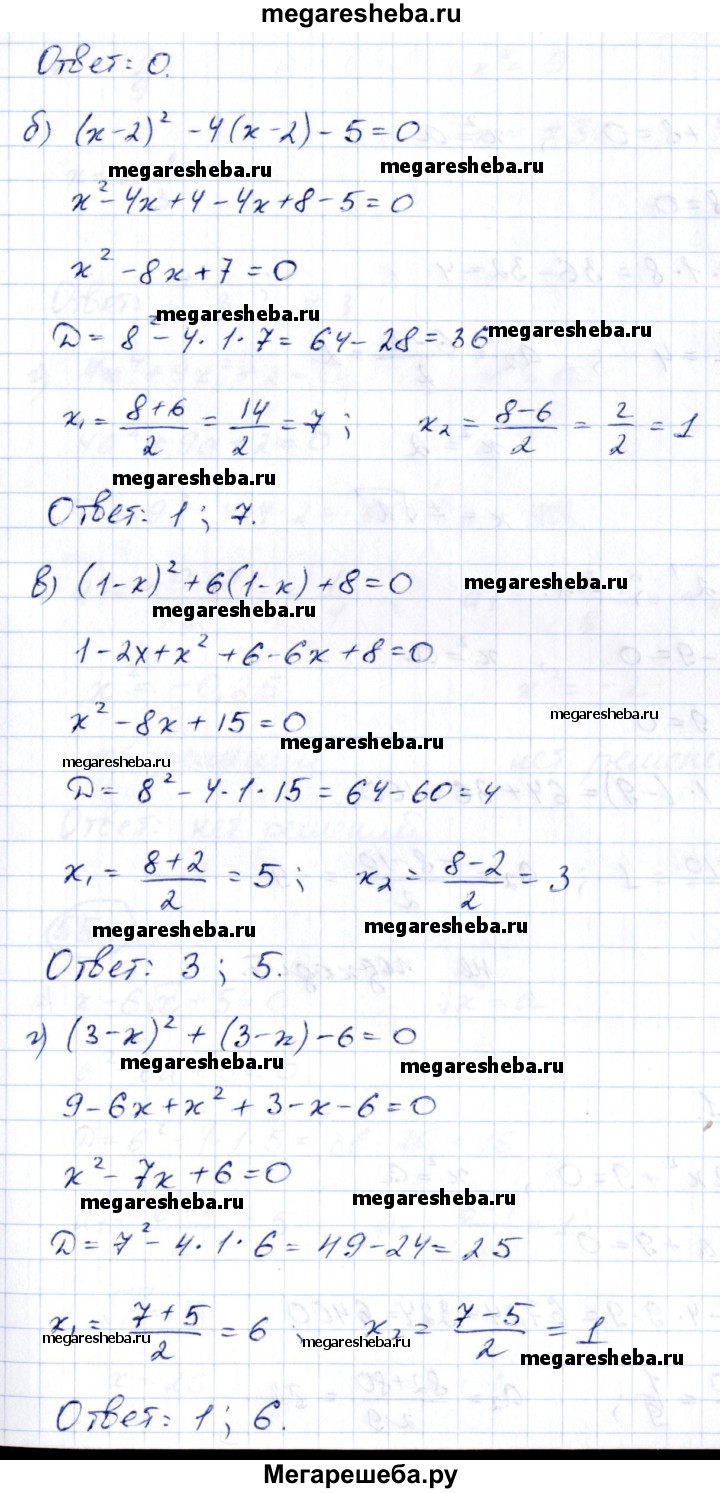 megaresheba.ru
Ответ: 0.
б) (x-2)² - 4(x-2) - 5 = 0
megaresheba.ru megaresheba.ru
x² - 4x + 4 - 4x + 8 - 5 = 0
x² - 8x + 7 = 0
megaresheba.ru
D = 8² - 4 · 1 · 7 = 64 - 28 = 36 megaresheba.ru
x₁ = (8+6)/2 = 14/2 = 7 ; x₂ = (8-6)/2 = 2/2 = 1
megaresheba.ru
Ответ: 1 ; 7.
в) (1-x)² + 6(1-x) + 8 = 0 megaresheba.ru
megaresheba.ru
1 - 2x + x² + 6 - 6x + 8 = 0
x² - 8x + 15 = 0 megaresheba.ru
megaresheba.ru
megaresheba.ru
D = 8² - 4 · 1 · 15 = 64 - 60 = 4
x₁ = (8+2)/2 = 5 ; x₂ = (8-2)/2 = 3
megaresheba.ru megaresheba.ru
Ответ: 3 ; 5.
г) (3-x)² + (3-x) - 6 = 0
megaresheba.ru megaresheba.ru
9 - 6x + x² + 3 - x - 6 = 0
x² - 7x + 6 = 0
megaresheba.ru megaresheba.ru
D = 7² - 4 · 1 · 6 = 49 - 24 = 25
x₁ = (7+5)/2 = 6 ; x₂ = (7-5)/2 = 1
megaresheba.ru megaresheba.ru megaresheba.ru
Ответ: 1 ; 6.
Мегарешеба.ру